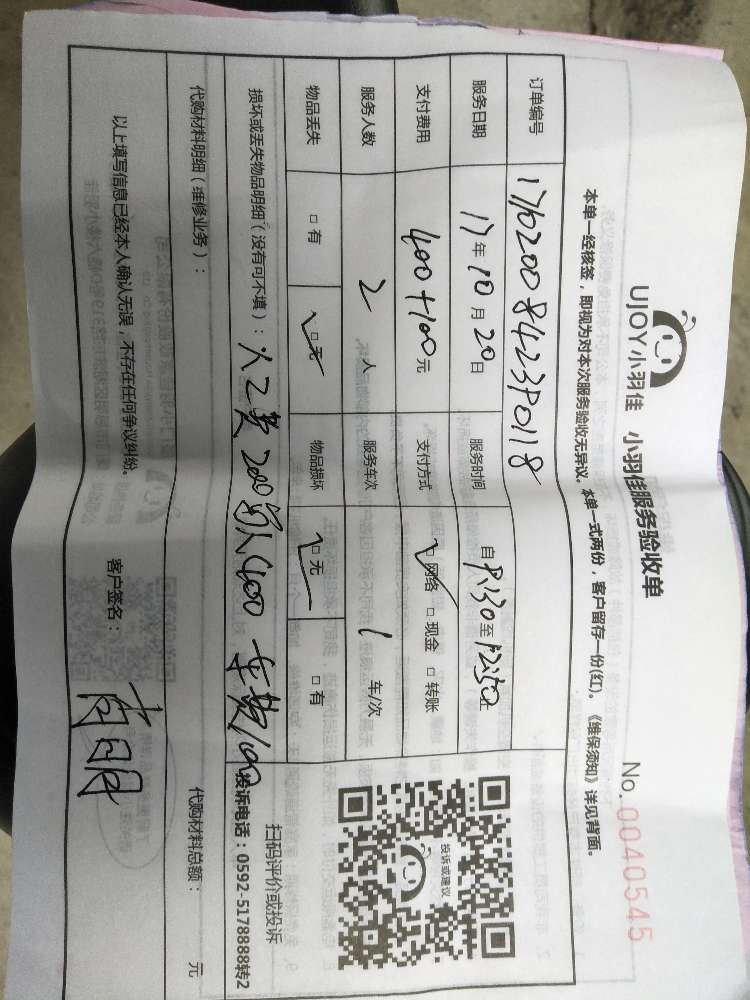 UJOY小羽佳 小羽佳服务验收单
No. 0040545
本单一经核签，即视为对本次服务验收无异议。本单一式两份，客户留存一份(红)。《维保须知》详见背面。
订单编号 1710200842380118
服务日期 17年10月20日 服务时间 自8:30至12:50止
支付费用 400+100元 支付方式 ☑网络 □现金 □转账
服务人数 2人 服务车次 1车/次
物品丢失 □有 ☑无 物品损坏 ☑无 □有
损坏或丢失物品明细（没有可不填）：人工费200每人400 车费100
代购材料明细（维修业务）：
代购材料总额： 元
以上填写信息已经本人确认无误，不存在任何争议纠纷。
客户签名：
投诉或建议
扫码评价或投诉
投诉电话：0592-5178888转2